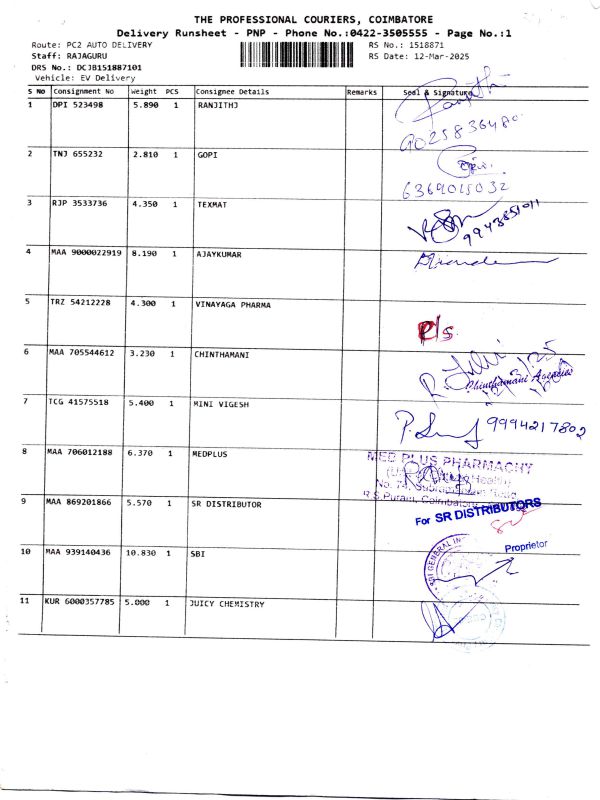 THE PROFESSIONAL COURIERS, COIMBATORE
Delivery Runsheet - PNP - Phone No.:0422-3505555 - Page No.:1
Route: PC2 AUTO DELIVERY RS No.: 1518871
Staff: RAJAGURU RS Date: 12-Mar-2025
DRS No.: DCJB151887101
Vehicle: EV Delivery
S No Consignment No Weight PCS Consignee Details Remarks Seal & Signature
1 DPI 523498 5.890 1 RANJITHJ
9025836480
2 TNJ 655232 2.810 1 GOPI
6369015032
3 RJP 3533736 4.350 1 TEXMAT
9943851011
4 MAA 9000022919 8.190 1 AJAYKUMAR
5 TRZ 54212228 4.300 1 VINAYAGA PHARMA
P/s
6 MAA 705544612 3.230 1 CHINTHAMANI
Chinthamani Agencies
7 TCG 41575518 5.400 1 MINI VIGESH
9994217802
8 MAA 706012188 6.370 1 MEDPLUS
MED PLUS PHARMACHY
R.S.Puram, Coimbatore
9 MAA 869201866 5.570 1 SR DISTRIBUTOR
For SR DISTRIBUTORS
Proprietor
10 MAA 939140436 10.830 1 SBI
SBI GENERAL
11 KUR 6000357785 5.000 1 JUICY CHEMISTRY